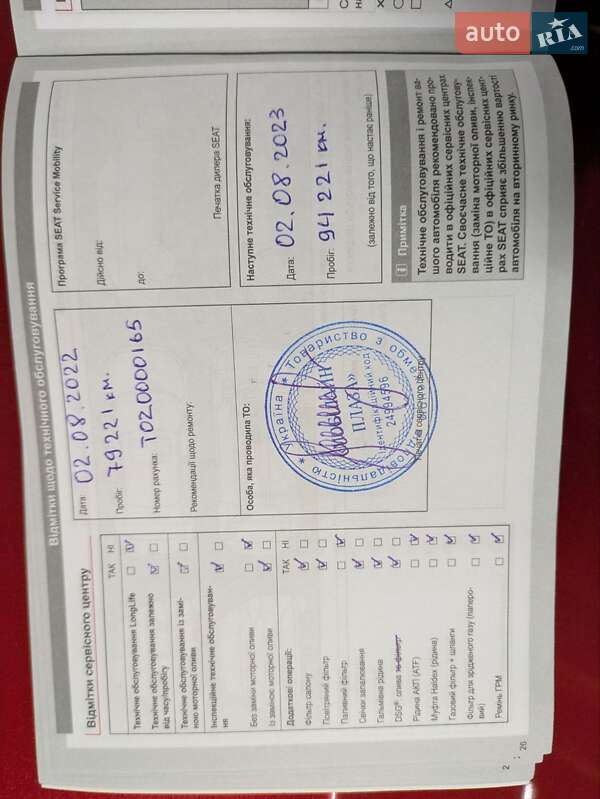 auto RIA .com
Відмітки щодо технічного обслуговування
Відмітки сервісного центру
ТАК НІ
Технічне обслуговування LongLife
Технічне обслуговування залежно
від часу/пробігу
Технічне обслуговування із замі-
ною моторної оливи
Інспекційне технічне обслуговуван-
ня
Без заміни моторної оливи
Із заміною моторної оливи
Додаткові операції: ТАК НІ
Фільтр салону
Повітряний фільтр
Паливний фільтр
Свічки запалювання
Гальмівна рідина
DSG® олива
Рідина АКП (ATF)
Муфта Haldex (рідина)
Газовий фільтр + шланги
Фільтр для зрідженого газу (паперо-
вий)
Ремінь ГРМ
Дата: 02.08.2022
Пробіг: 79221 км.
Номер рахунка: ТО20000165
Рекомендації щодо ремонту:
Особа, яка проводила ТО:
Україна * Товариство з обмеженою відповідальністю *
ПЛАЗА»
Ідентифікаційний код
24994596
Печатка сервісного центру
Програма SEAT Service Mobility
Дійсно від:
до:
Печатка дилера SEAT
Наступне технічне обслуговування:
Дата: 02.08.2023
Пробіг: 94221 км.
(залежно від того, що настає раніше)
i Примітка
Технічне обслуговування і ремонт ва-
шого автомобіля рекомендовано про-
водити в офіційних сервісних центрах
SEAT. Своєчасне технічне обслугову-
вання (заміна моторної оливи, інспек-
ційне ТО) в офіційних сервісних цент-
рах SEAT сприяє збільшенню вартості
автомобіля на вторинному ринку.
26